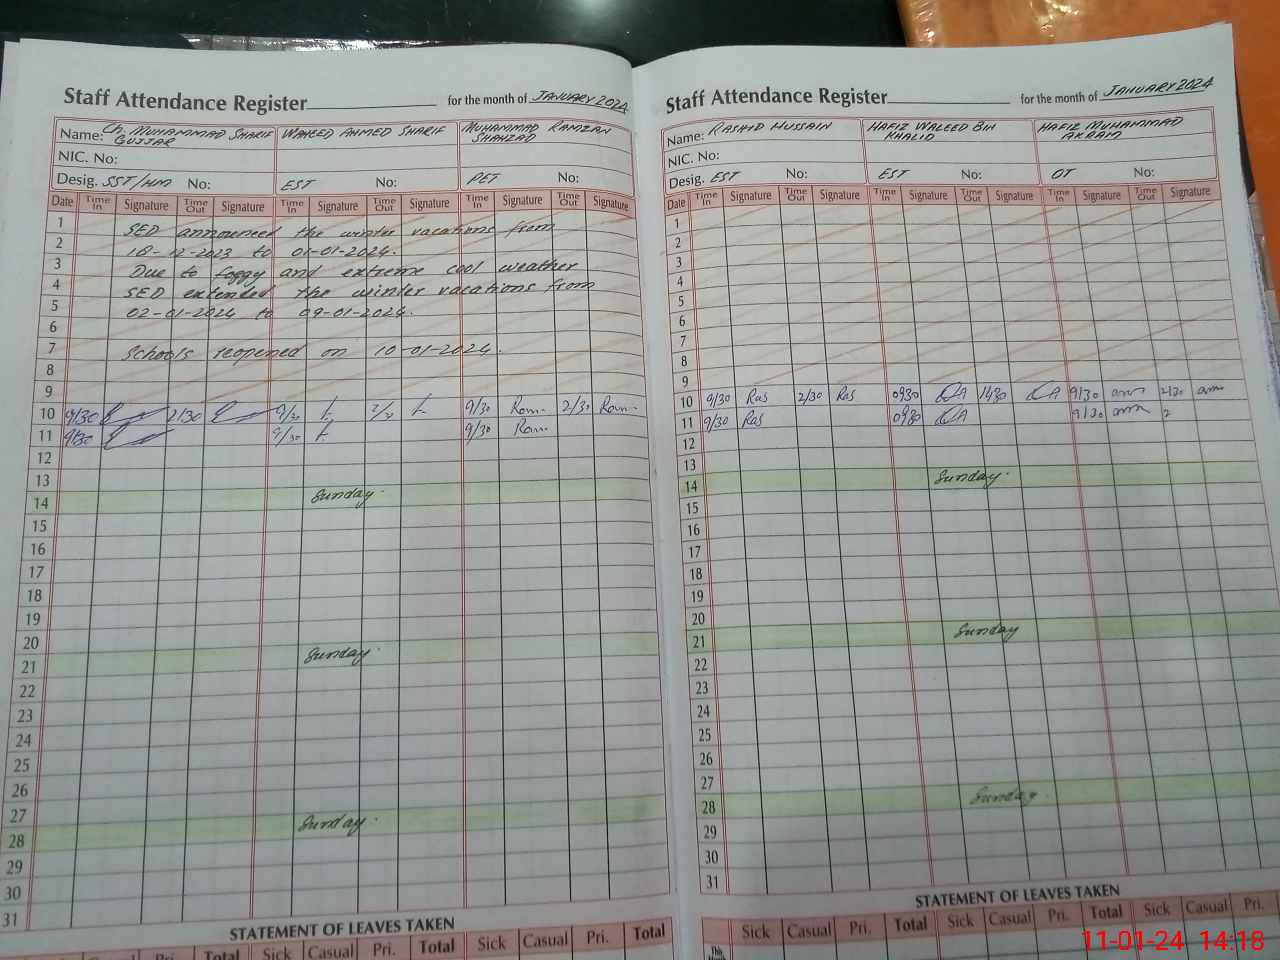 Staff Attendance Register for the month of JANUARY 2024
Name: Ch. MUHAMMAD SHARIF GUJJAR WAHEED AHMED SHARIF MUHAMMAD RAMZAN SHAHZAD
NIC. No:
Desig. SST/HM No: EST No: PET No:
Date Time In Signature Time Out Signature Time In Signature Time Out Signature Time In Signature Time Out Signature
1 SED announced the winter vacations from
2 18-12-2023 to 01-01-2024.
3 Due to foggy and extreme cool weather
4 SED extended the winter vacations from
5 02-01-2024 to 09-01-2024.
6
7 Schools reopened on 10-01-2024.
8
9
10 9/30 2/30 9/30 Ram 2/30 Ram
11 9/30 9/30 9/30 Ram
12
13
14 Sunday.
15
16
17
18
19
20
21 Sunday.
22
23
24
25
26
27
28 Sunday.
29
30
31
STATEMENT OF LEAVES TAKEN
Casual Pri. Total Sick Casual Pri. Total Sick Casual Pri. Total
Staff Attendance Register for the month of JANUARY 2024
Name: RASHID HUSSAIN HAFIZ WALEED BIN KHALID HAFIZ MUHAMMAD AKRAM
NIC. No:
Desig. EST No: EST No: OT No:
Date Time In Signature Time Out Signature Time In Signature Time Out Signature Time In Signature Time Out Signature
1
2
3
4
5
6
7
8
9
10 9/30 Ras 2/30 Ras 0930 1430 9/30 2/30
11 9/30 Ras 0930 9/30 2
12
13
14 Sunday.
15
16
17
18
19
20
21 Sunday
22
23
24
25
26
27
28 Sunday.
29
30
31
STATEMENT OF LEAVES TAKEN
Sick Casual Pri. Total Sick Casual Pri. Total Sick Casual Pri.
11-01-24 14:18